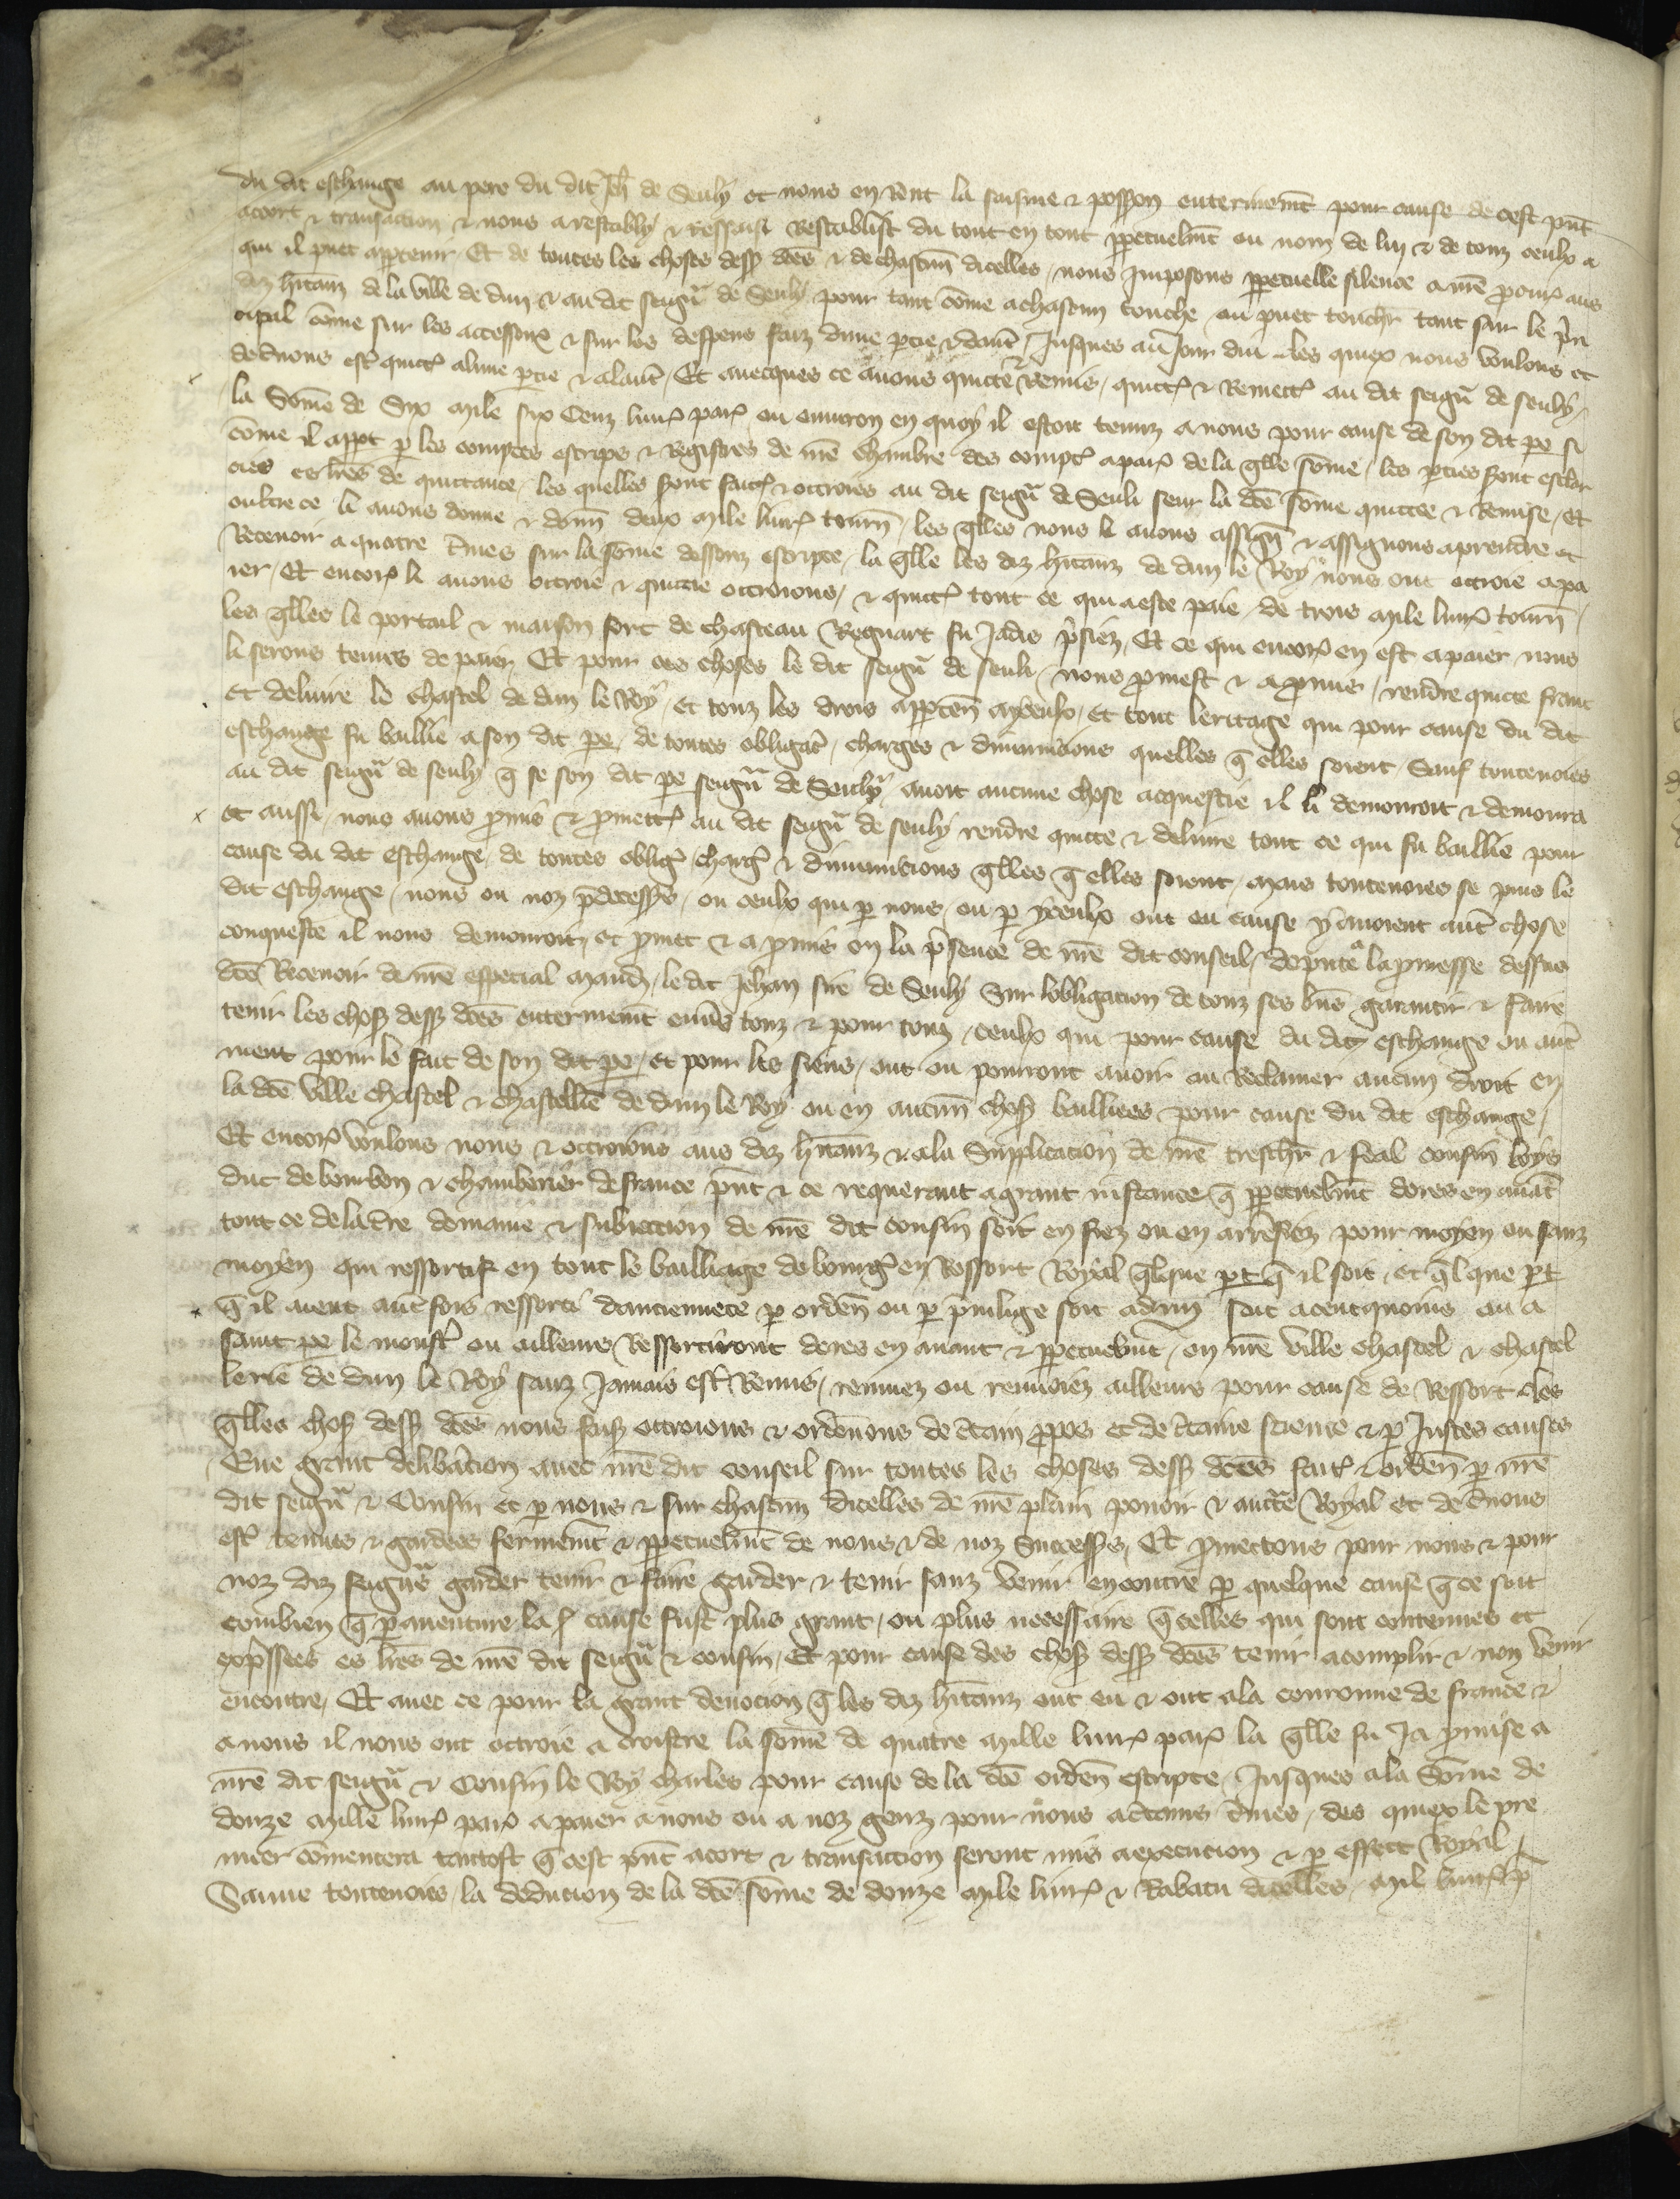 du dit eschange au pere du dit Jeh̄ de Seuly et nous en rent la saisine & poss̄on enterinem̄t pour cause de cest pn̄t
acort & transaction & nous a restably & ressaisi restablist du tout en tout ꝑpetuelm̄t ou nom de luy & de touz ceulx a
qui il puet apꝑtenir Et de toutes les choses dess̄ dc̄es & de chascun̄ dicelles nous imposons ꝑpetuelle silence a nr̄e ꝓcurꝰ aus
diz hītanz de la ville de dun & au dit seigñ de Seuly pour tant cōme a chascun touche ou puet touchr̄ tant sur le pͥn
cipal cōme sur les accessorꝭ & sur les despens faiz dune ꝑtie & dautr̄ Jusques au Jour dui les quiex nous voulons et
devons estꝰ quictꝭ alune ꝑtie & alautr̄ Et avecques ce avons quicte & remis quictꝭ & remectꝭ au dit seigñ de seuly
la Sōme de Six mile six Cenz livrꝭ parꝭ ou environ en quoy il estoit tenuz a nous pour cause de son dit ꝑe si
cōme il appt ꝑ les comptes escrips & registres de nr̄e chambre des comptꝭ a parꝭ de la q̄lle sōme les ꝑties sont esclar
cies es lr̄es de quittance les quelles sont faictꝭ & octroies au dit seigñ de Seuli seur la dc̄e sōme quictee & remise Et
oultre ce li avons donne & donn̄ deux mile livrꝭ tourn̄ les q̄lles nous li avons assign̄ & assignons a prendre et
Recevoir a quatre t̄mes sur la sōme dessouz escripte la q̄lle les diz hītanz de dun le Roy nous ont octroie a pa
ier Et encorꝭ li avons octroie & quicte octroions & quictꝭ tout ce qui a este paie de trois mile livrꝭ tourn̄
les q̄lles le portail & maison fort de chasteau Regnart fu Jadis pͥsiez Et ce qui encorꝭ en est a paier nous
li serons tenus de paier Et pour ces choses le dit seigñ de seuli nous ꝓmest & a ꝓmis rendre quicte franc
et delivre le chastel de dun le Roy et touz les drois apꝑten̄ a yceulx et tout leritage qui pour cause du dit
eschange fu baillie a son dit ꝑe de toutes obligac̄ charges & diminucions quelles q̄ elles soient Sauf toutevoies
au dit seigñ de seuly q̄ se son dit ꝑe seigñ de Seuly avoit aucune chose acquestie il li demourroit & demourra
et aussi nous avons ꝓmis & ꝓmectꝭ au dit seigñ de seuly rendre quicte & delivre tout ce qui fu baillie pour
cause du dit eschange de toutes obligꝭ chargꝭ & diminucions q̄lles q̄ elles soient mais toutevoies se puis le
dit eschange nous ou noz p̄decess̄s ou ceulx qui ꝑ nous ou ꝑ yceulx ont eu cause y avoient autr̄ chose
conqueste il nous demourroit et ꝓmet & a ꝓmis en la pͥsence de nr̄e dit conseil depute a la ꝓmesse dessus
dc̄e Recevoir de nr̄e especial mand̄ le dit Jehan sire de Seuly Sur lobligacion de touz ses biēs garantir & faire
tenir les chos̄ dess̄ dc̄es enterinem̄t env̄s touz & pour touz ceulx qui pour cause du dit eschange ou autr̄
ment pour le fait de son dit ꝑe et pour les siens ont ou pourront avoir ou Reclamer aucun droit en
la dc̄e ville chastel & chastellīe de dun le Roy ou en aucun̄ chos̄ baillees pour cause du dit eschange
Et encorꝭ voulons nous & octroions aus diz hītanz & a la Supplicacion de nr̄e treschr̄ & feal cousin loys
duc de bourbon & chamberier de france pn̄t & ce requerant a grant instance q̄ ꝑpetuelm̄t dores en avāt
tout ce de la tr̄re demaine & subiection de nr̄e dit cousin soit en fiez ou en arrefiez pour moyen ou sanz
moyen qui ressortist en tout le bailliage de bourgꝭ en Ressort Royal q̄lque ꝑt q̄ il soit et q̄l que ꝑt
q̄ il aient autr̄fois ressorti danciennete ꝑ orden̄ ou ꝑ pͥvilege soit a dun soit a cenquoins ou a
saint ꝑe le moustͥ ou ailleurs Ressortiront dores en avant & ꝑpetuelm̄t en nr̄e ville chastel & chastel
lerie de dun le Roy sanz Jamais estꝰ Remis remuez ou renvoiez ailleurs pour cause de Ressort Les
q̄lles chos̄ dess̄ dc̄es nous fais̄ octroions & ordenons de c̄tain ꝓpos et de c̄taine science & ꝑ Justes causes
Eue grant delibācion avec nr̄e dit conseil sur toutes les choses dess̄ dc̄es faitꝭ & orden̄ ꝑ nr̄e
dit seigñ & Cousin et ꝑ nous & sur chascun dicelles de nr̄e plain povoir & auctr̄e Royal et de d̄vons
estꝰ tenues & gardees fermem̄t & ꝑpetuelm̄t de nous & de noz Success̄s Et ꝓmectons pour nous & pour
noz diz seign̄s garder tenir & faire garder & tenir sanz venir encontre ꝑ quelque cause q̄ ce soit
combien q̄ ꝑ aventure la cause fust plus grant ou plus necessaire q̄ celles qui sont contenues et
exp̄ssees es lr̄es de nr̄e dit seigñ & cousin Et pour cause des chos̄ dess̄ dc̄es tenir acomplir & non venir
encontre Et avec ce pour la grant devocion q̄ les diz hītanz ont eu & ont a la couronne de france &
a nous il nous ont octroie a croistre la sōme de quatre mille livrꝭ parꝭ la q̄lle fu Ja ꝓmise a
nr̄e dit seigñ & Cousin le Roy charles pour cause de la dc̄e orden̄ escripte Jusques a la Sōme de
douze mille livrꝭ parꝭ a paier a nous ou a noz genz pour nous a c̄tains t̄mes des quiex le pre
mier cōmencera tantost q̄ cest pn̄t acort & transaction seront mis a execucion & ꝑ effect Royal
Sauve toutevoies la deducion de la dc̄e sōme de douze mile livrꝭ & Rabatu dicelles mil livrꝭ p̄